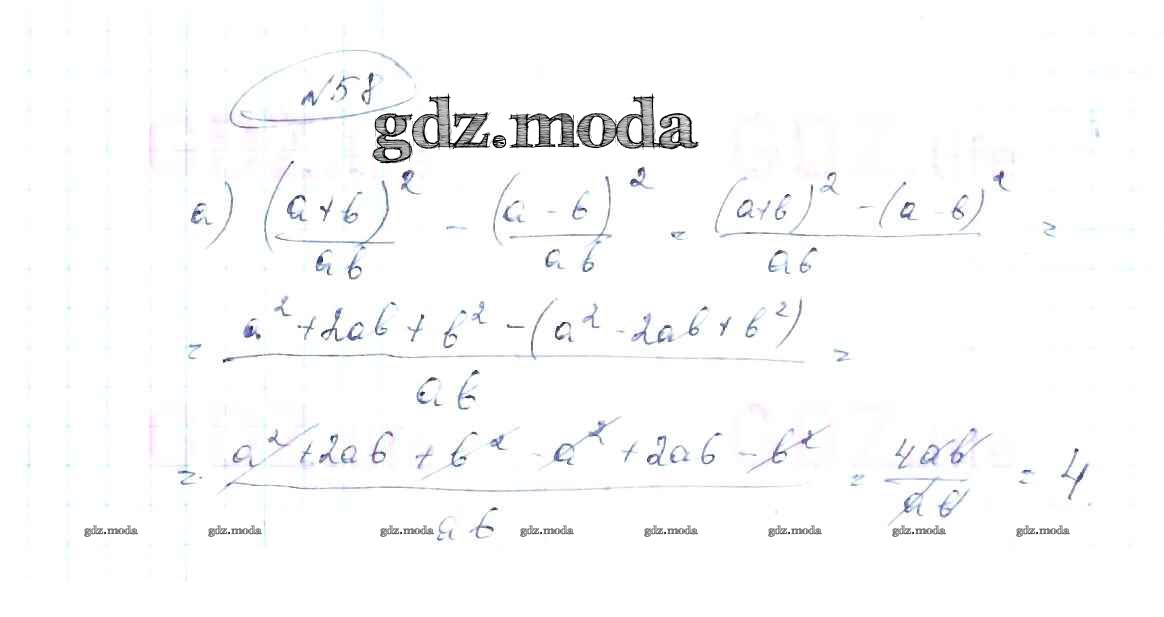 №58
gdz.moda
а) (a+b)²/ab - (a-b)²/ab = (a+b)² - (a-b)²/ab =
= a² + 2ab + b² - (a² - 2ab + b²)/ab =
= a² + 2ab + b² - a² + 2ab - b²/ab = 4ab/ab = 4.
gdz.moda gdz.moda gdz.moda gdz.moda gdz.moda gdz.moda gdz.moda gdz.moda